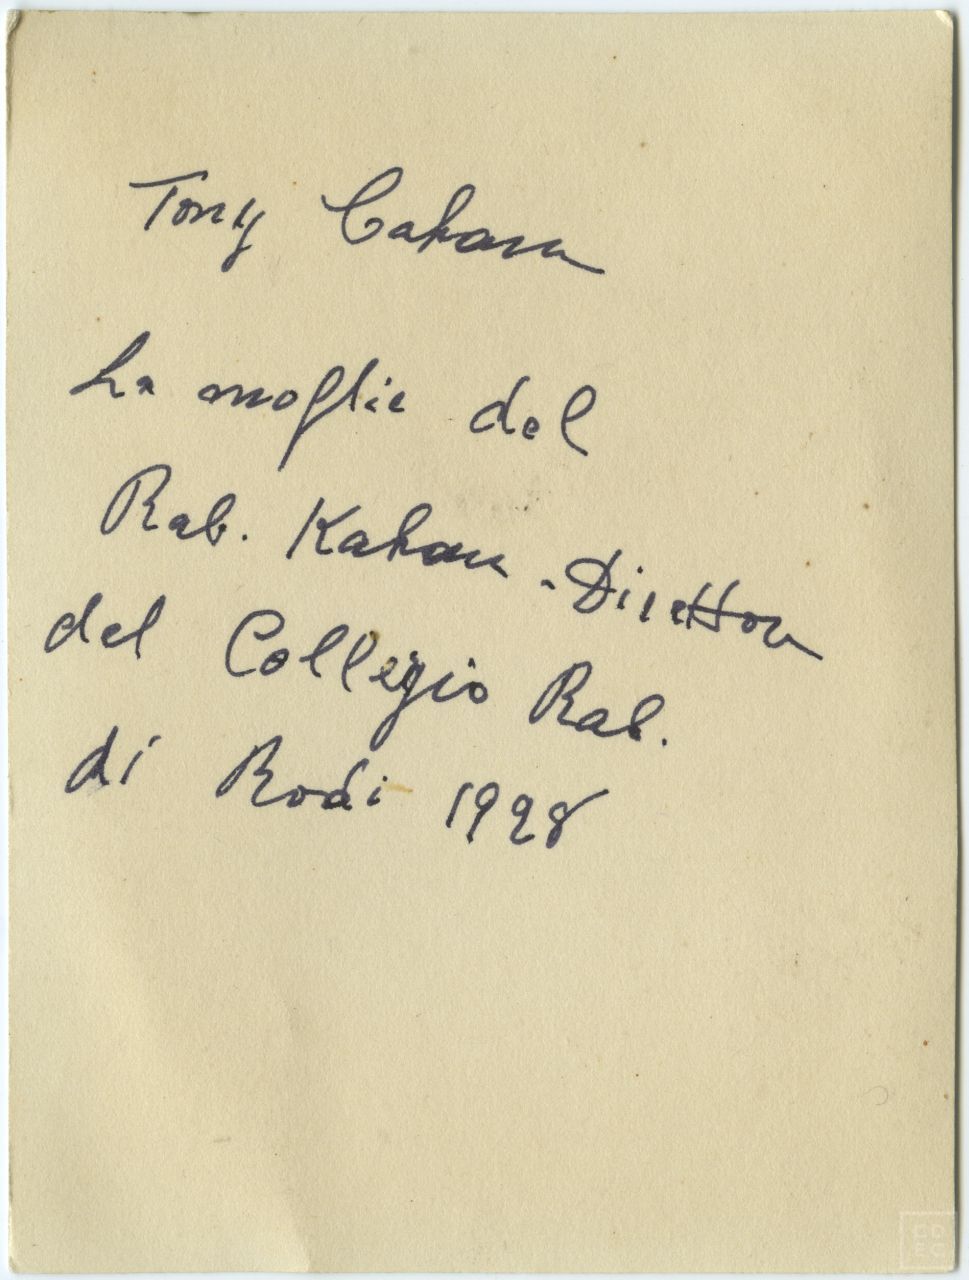 Tony Cahan
La moglie del
Rab. Kahan - Direttore
del Collegio Rab.
di Rodi 1928
CD
EC